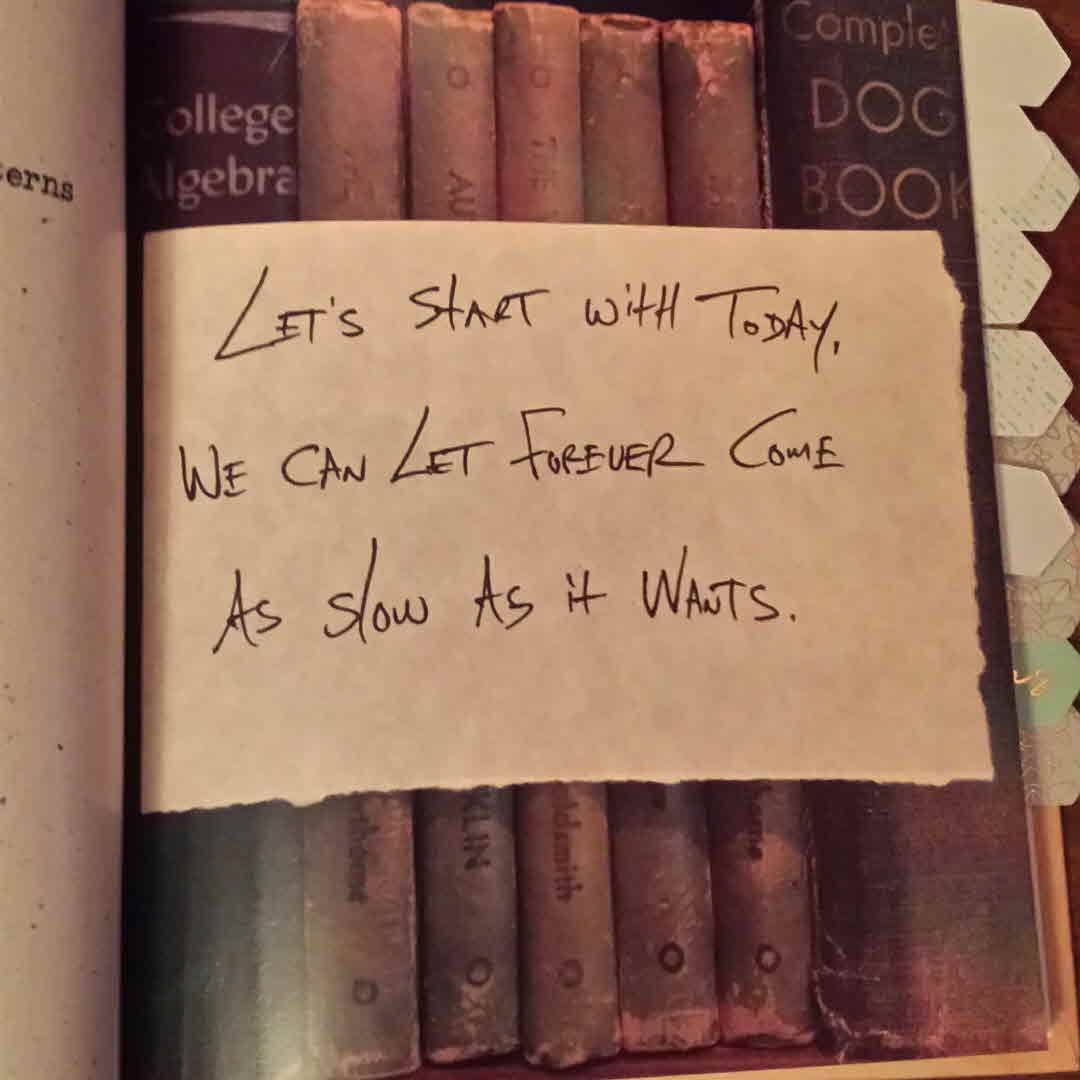 erns
College
Algebra
AU
THE
Comple
DOG
BOOK
LET'S START WITH TODAY.
WE CAN LET FOREVER COME
AS SLOW AS IT WANTS.
KLIN
ldsmith